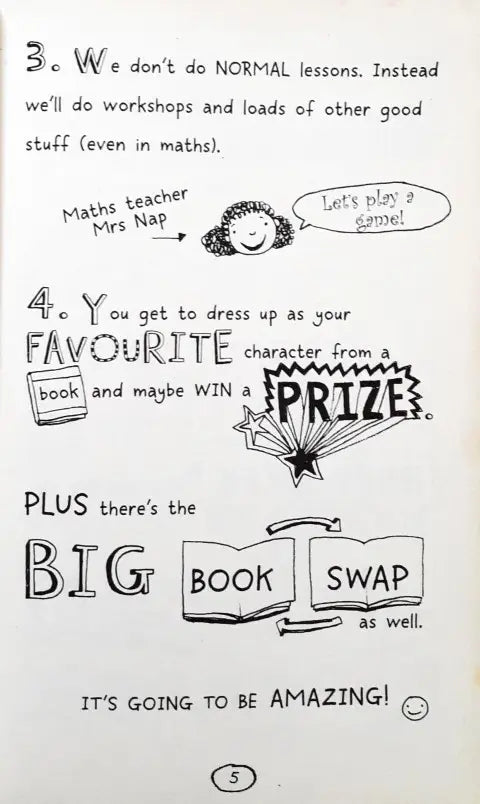 3. We don't do NORMAL lessons. Instead
we'll do workshops and loads of other good
stuff (even in maths).
Maths teacher
Mrs Nap
Let's play a
game!
4. You get to dress up as your
FAVOURITE character from a
book and maybe WIN a PRIZE.
PLUS there's the
BIG BOOK SWAP
as well.
IT'S GOING TO BE AMAZING!
5